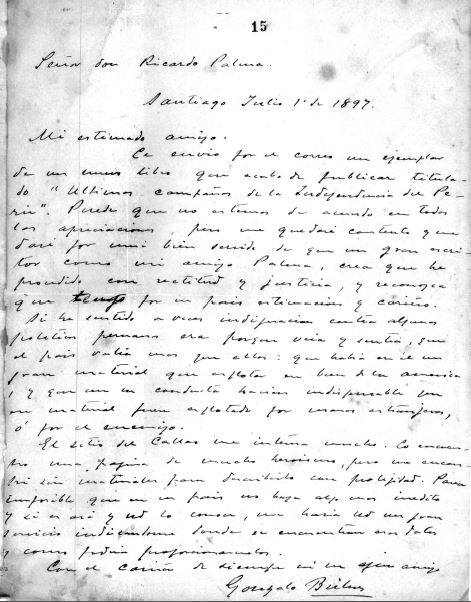 15
Señor don Ricardo Palma.
Santiago Julio 1º de 1897.
Mi estimado amigo.
Le envio por el correo un ejemplar
de un nuevo libro que acabo de publicar titula-
do "Ultimas campañas de la Independencia del Pe-
rú". Puede que no estemos de acuerdo en todas
las apreciaciones, pero me quedaré contento y que
daré por muy bien servido de que un gran escri-
tor como mi amigo Palma, crea que he
procedido con rectitud y justicia, y reconozca
que tengo por su pais estimacion y cariño.
Si he sentido a veces indignacion contra algunos
politicos peruanos era porque veia y sentia, que
el pais valia mas que ellos: que habia en él un
gran material que explotar en bien de la America
y que con su conducta hacian indispensable que
ese material fuera explotado por manos estranjeras,
ó por el enemigo.
El sitio del Callao me interesa mucho. Lo encuen-
tro una pájina de mucho heroismo, pero me encon-
tré sin materiales para describirlo con prolijidad. Parece
imposible que en su pais no haya algo mas inedito
y si es asi y Ud lo conoce, me haria Ud un gran
servicio indicándome donde se encuentran esos datos
y como podria proporcionármelos.
Con el cariño de siempre su amigo
Gonzalo Bulnes